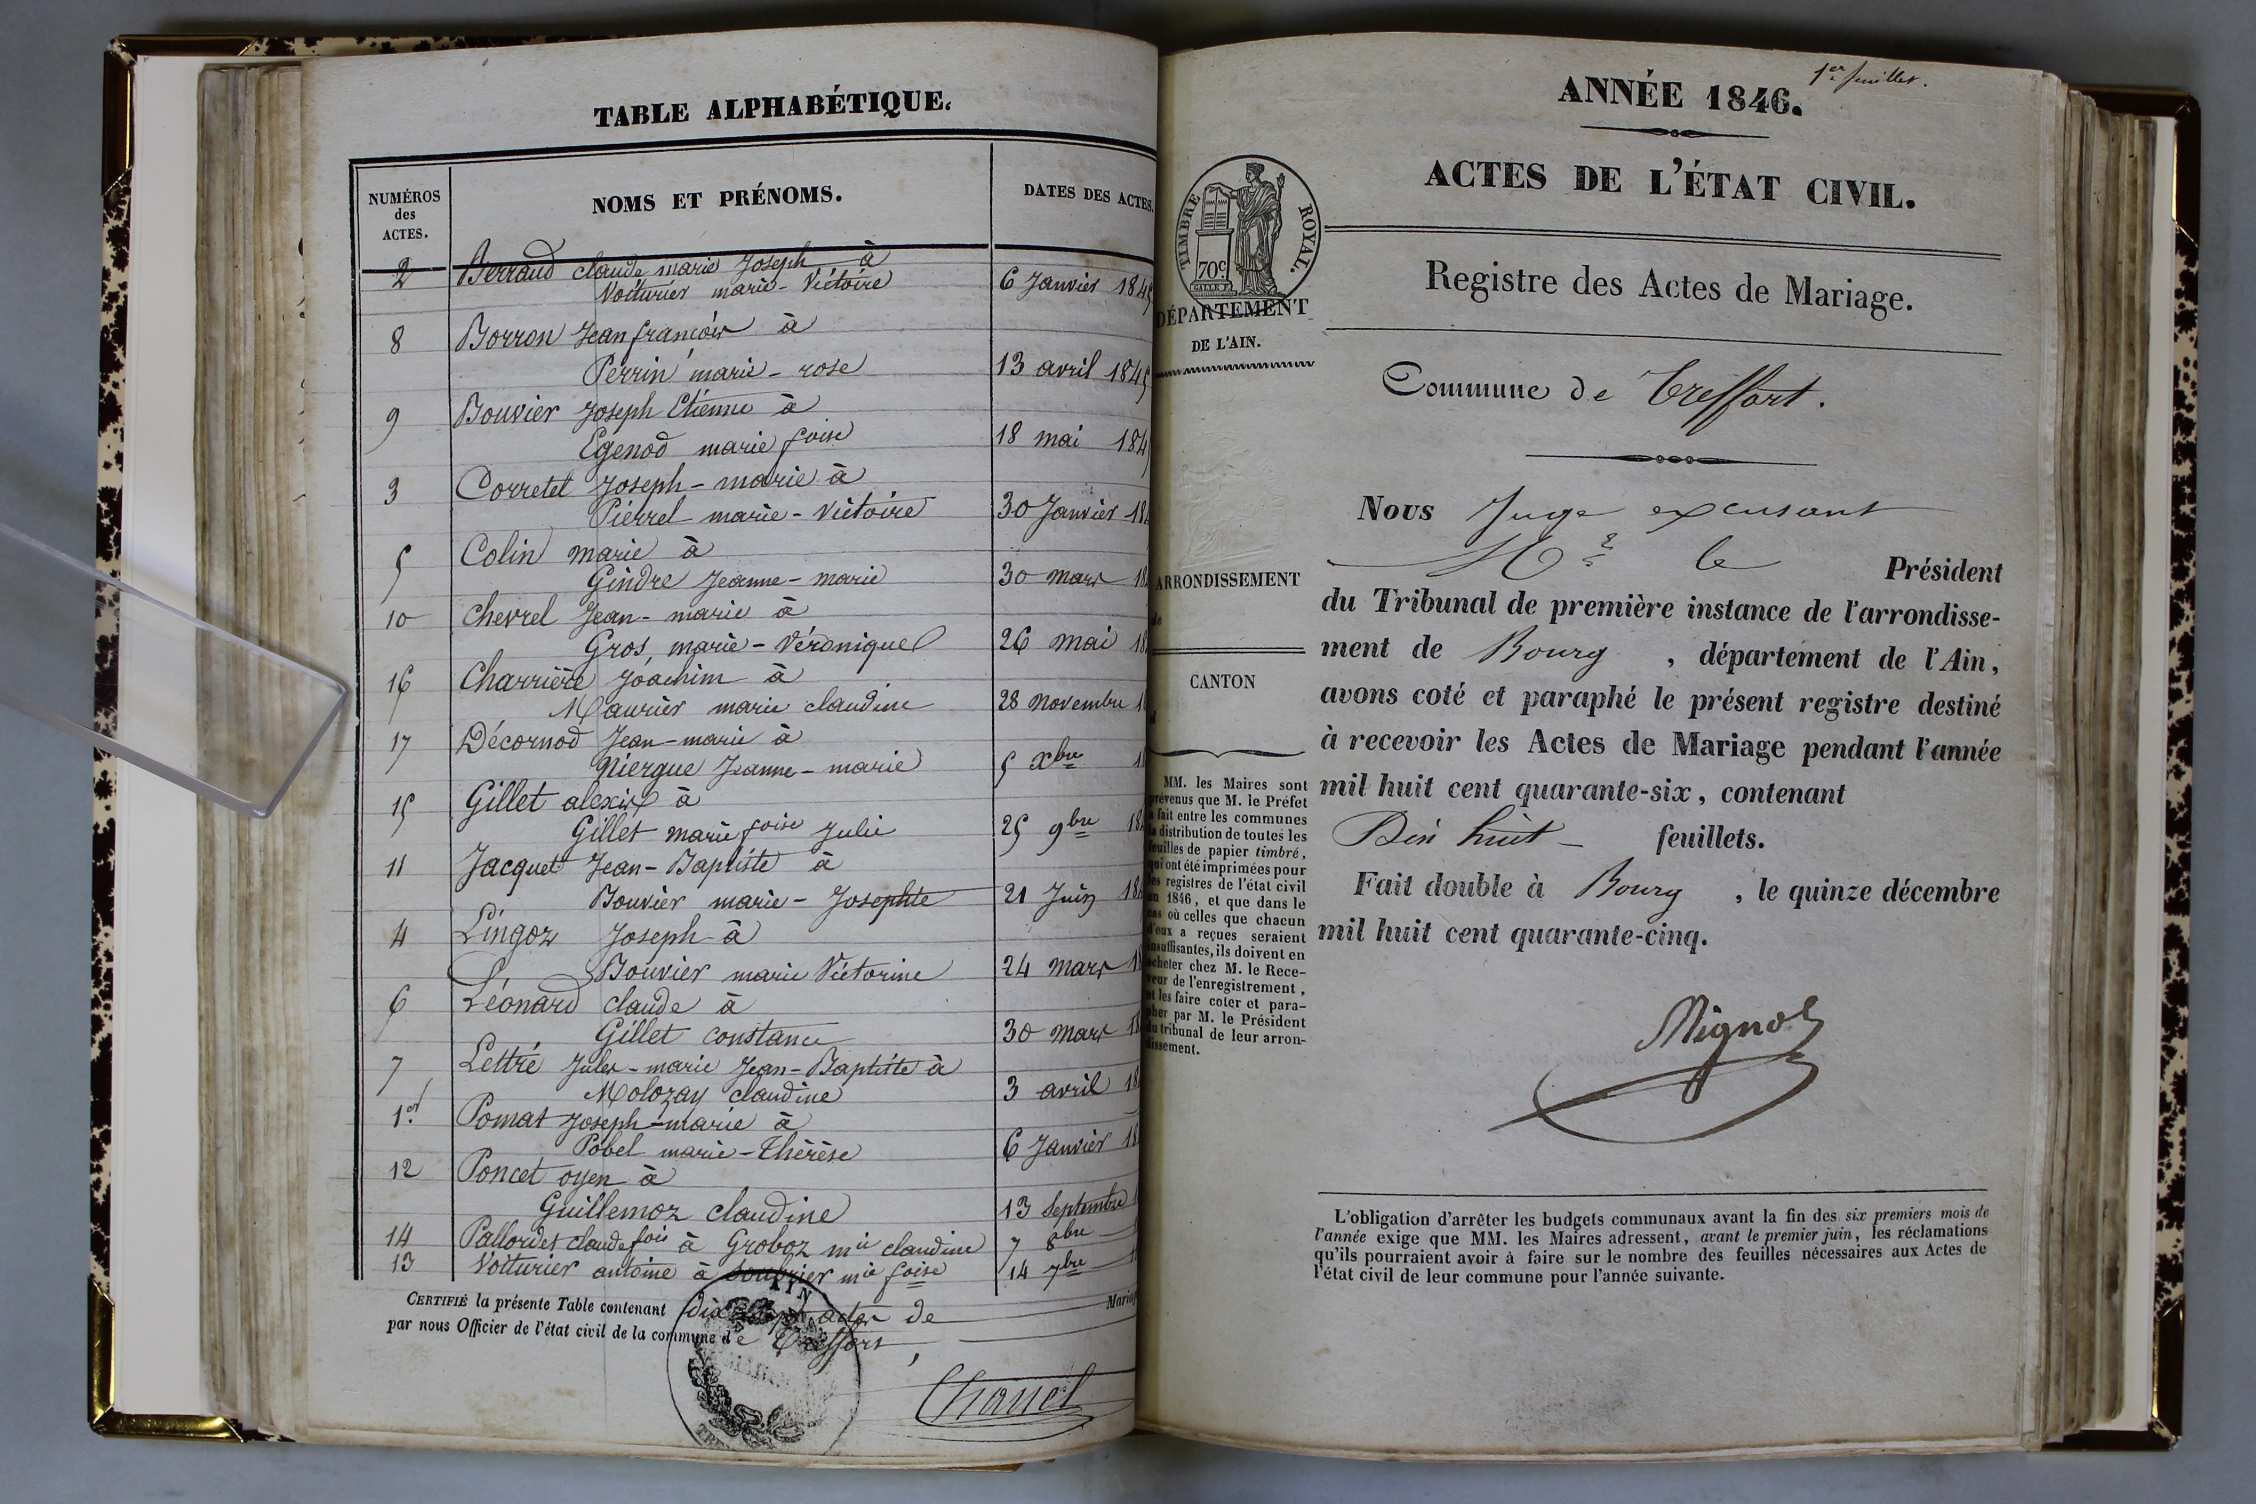 TABLE ALPHABÉTIQUE.
NUMÉROS
des
ACTES.
NOMS ET PRÉNOMS.
DATES DES ACTES.
2 Berraud claude marie Joseph à
Voiturier marie-Victoire 6 Janvier 1845
8 Borron Jean françois à
Perrin marie-rose 13 avril 1845
9 Bouvier Joseph Etienne à
Egenod marie foise 18 mai 184
3 Corretel Joseph-marie à
Pierrel marie-Victoire 30 Janvier 18
5 Colin marie à
Gindre Jeanne-marie 30 mars 18
10 Chevrel Jean-marie à
Gros, marie-Véronique 26 mai 18
16 Charrière Joachim à
Maurier marie claudine 28 Novembre 1
17 Décornod Jean-marie à
Niergue Jeanne-marie 5 Xbre 18
15 Gillet alexis à
Gillet marie foise Julie 25 9bre 18
11 Jacquet Jean-Baptiste à
Bouvier marie-Josephte 21 Juin 18
4 Lingoz Joseph à
Bouvier marie Victorine 24 mars 18
6 Léonard claude à
Gillet constance 30 mars 18
7 Lettré Jules-marie Jean-Baptiste à
Molozay claudine 3 avril 18
1er Pomat Joseph-marie à
Pobel marie-Thérèse 6 Janvier 18
12 Poncet oyen à
Guillemoz claudine 13 Septembre 1
14 Pallordet claude fois à Groboz mie claudine 7 8bre
13 Voiturier antoine à Bouvier mie foise 14 7bre
CERTIFIÉ la présente Table contenant dix sept actes de Mariage
par nous Officier de l'état civil de la commune de Treffort,
Chanel
1er feuillet.
ANNÉE 1846.
ACTES DE L'ÉTAT CIVIL.
TIMBRE ROYAL.
70c
DÉPARTEMENT
DE L'AIN.
Registre des Actes de Mariage.
Commune de Treffort.
ARRONDISSEMENT
de
CANTON
MM. les Maires sont
prévenus que M. le Préfet
a fait entre les communes
la distribution de toutes les
feuilles de papier timbré,
qui ont été imprimées pour
les registres de l'état civil
en 1846, et que dans le
cas où celles que chacun
d'eux a reçues seraient
insuffisantes, ils doivent en
acheter chez M. le Rece-
veur de l'enregistrement,
et les faire coter et para-
pher par M. le Président
du tribunal de leur arron-
dissement.
Nous Juge excusant
Mr le Président
du Tribunal de première instance de l'arrondisse-
ment de Bourg, département de l'Ain,
avons coté et paraphé le présent registre destiné
à recevoir les Actes de Mariage pendant l'année
mil huit cent quarante-six, contenant
Dix huit feuillets.
Fait double à Bourg, le quinze décembre
mil huit cent quarante-cinq.
Mignot
L'obligation d'arrêter les budgets communaux avant la fin des six premiers mois de
l'année exige que MM. les Maires adressent, avant le premier juin, les réclamations
qu'ils pourraient avoir à faire sur le nombre des feuilles nécessaires aux Actes de
l'état civil de leur commune pour l'année suivante.